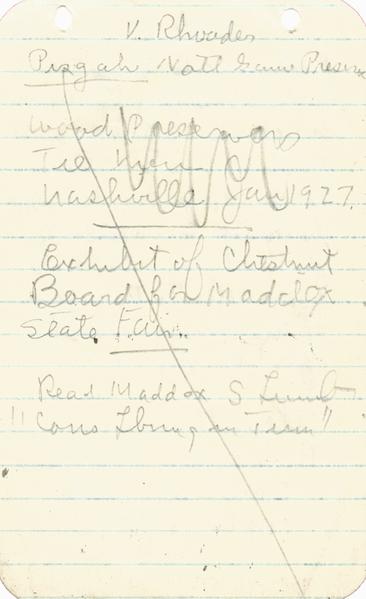 V. Rhoades
Pisgah Natl Game Preserve
Wood Preservers
Tie Men
Nashville Jan 1927.
Exhibit of Chestnut
Board for Maddox
State Fair.
Read Maddox S Lumb
"Cons in Tenn"